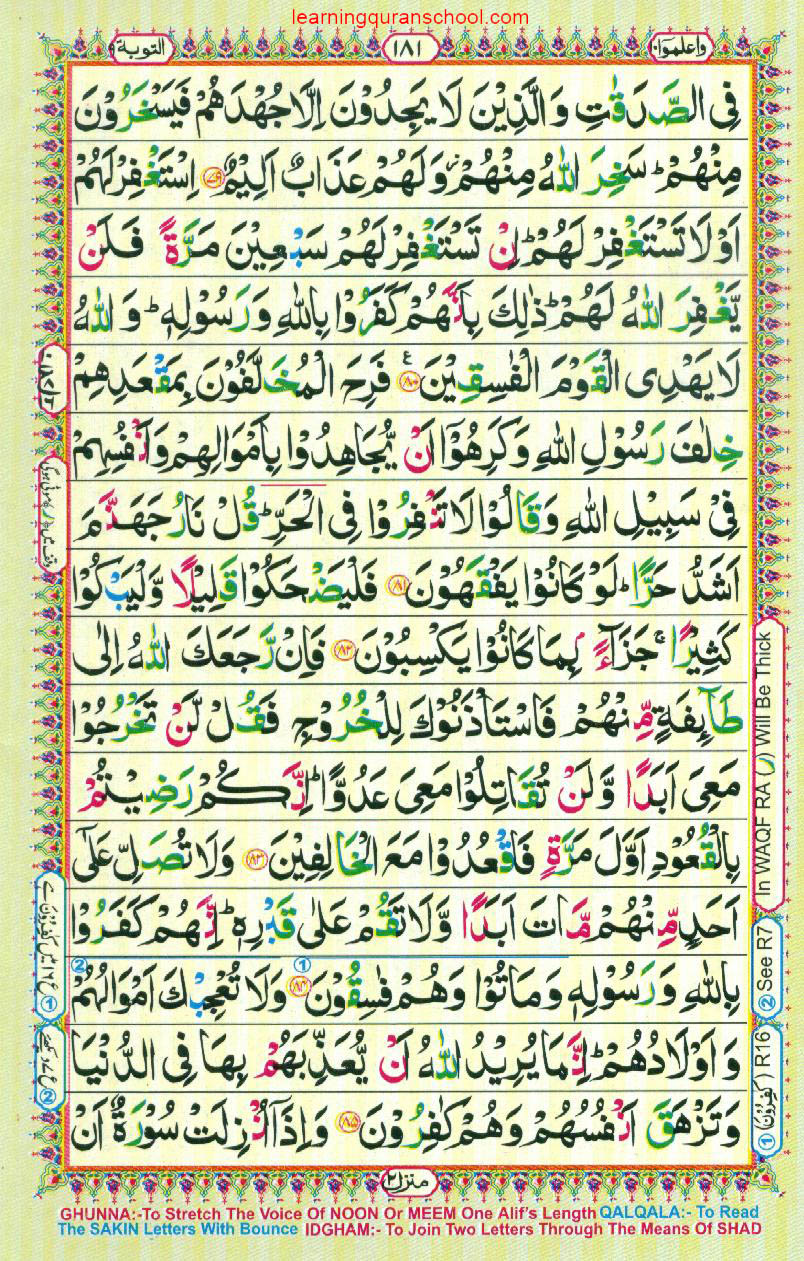 learningquranschool.com
التوبة ٩
١٨١
واعلموا ١٠
فِى الصَّدَقٰتِ وَالَّذِيْنَ لَا يَجِدُوْنَ اِلَّا جُهْدَهُمْ فَيَسْخَرُوْنَ
مِنْهُمْ ؕ سَخِرَ اللّٰهُ مِنْهُمْ ؗ وَلَهُمْ عَذَابٌ اَلِيْمٌ ﴿۷۹﴾ اِسْتَغْفِرْ لَهُمْ
اَوْ لَا تَسْتَغْفِرْ لَهُمْ ؕ اِنْ تَسْتَغْفِرْ لَهُمْ سَبْعِيْنَ مَرَّةً فَلَنْ
يَّغْفِرَ اللّٰهُ لَهُمْ ؕ ذٰلِكَ بِاَنَّهُمْ كَفَرُوْا بِاللّٰهِ وَرَسُوْلِهٖ ؕ وَاللّٰهُ
لَا يَهْدِى الْقَوْمَ الْفٰسِقِيْنَ ﴿۸۰﴾ فَرِحَ الْمُخَلَّفُوْنَ بِمَقْعَدِهِمْ
خِلٰفَ رَسُوْلِ اللّٰهِ وَكَرِهُوْۤا اَنْ يُّجَاهِدُوْا بِاَمْوَالِهِمْ وَاَنْفُسِهِمْ
فِىْ سَبِيْلِ اللّٰهِ وَقَالُوْا لَا تَنْفِرُوْا فِى الْحَرِّ ؕ قُلْ نَارُ جَهَنَّمَ
اَشَدُّ حَرًّا ؕ لَوْ كَانُوْا يَفْقَهُوْنَ ﴿۸۱﴾ فَلْيَضْحَكُوْا قَلِيْلًا وَّلْيَبْكُوْا
كَثِيْرًا ۚ جَزَآءًۢ بِمَا كَانُوْا يَكْسِبُوْنَ ﴿۸۲﴾ فَاِنْ رَّجَعَكَ اللّٰهُ اِلٰى
طَآئِفَةٍ مِّنْهُمْ فَاسْتَاْذَنُوْكَ لِلْخُرُوْجِ فَقُلْ لَّنْ تَخْرُجُوْا
مَعِىَ اَبَدًا وَّلَنْ تُقَاتِلُوْا مَعِىَ عَدُوًّا ؕ اِنَّكُمْ رَضِيْتُمْ
بِالْقُعُوْدِ اَوَّلَ مَرَّةٍ فَاقْعُدُوْا مَعَ الْخَالِفِيْنَ ﴿۸۳﴾ وَلَا تُصَلِّ عَلٰٓى
اَحَدٍ مِّنْهُمْ مَّاتَ اَبَدًا وَّلَا تَقُمْ عَلٰى قَبْرِهٖ ؕ اِنَّهُمْ كَفَرُوْا
بِاللّٰهِ وَرَسُوْلِهٖ وَمَاتُوْا وَهُمْ فٰسِقُوْنَ ﴿۸۴﴾ وَلَا تُعْجِبْكَ اَمْوَالُهُمْ
وَاَوْلَادُهُمْ ؕ اِنَّمَا يُرِيْدُ اللّٰهُ اَنْ يُّعَذِّبَهُمْ بِهَا فِى الدُّنْيَا
وَتَزْهَقَ اَنْفُسُهُمْ وَهُمْ كٰفِرُوْنَ ﴿۸۵﴾ وَاِذَاۤ اُنْزِلَتْ سُوْرَةٌ اَنْ
In WAQF RA (ر) Will Be Thick
② See R7
① (كٰفِرُوْنَ) R16
منزل ٢
GHUNNA:-To Stretch The Voice Of NOON Or MEEM One Alif's Length QALQALA:- To Read
The SAKIN Letters With Bounce IDGHAM:- To Join Two Letters Through The Means Of SHAD